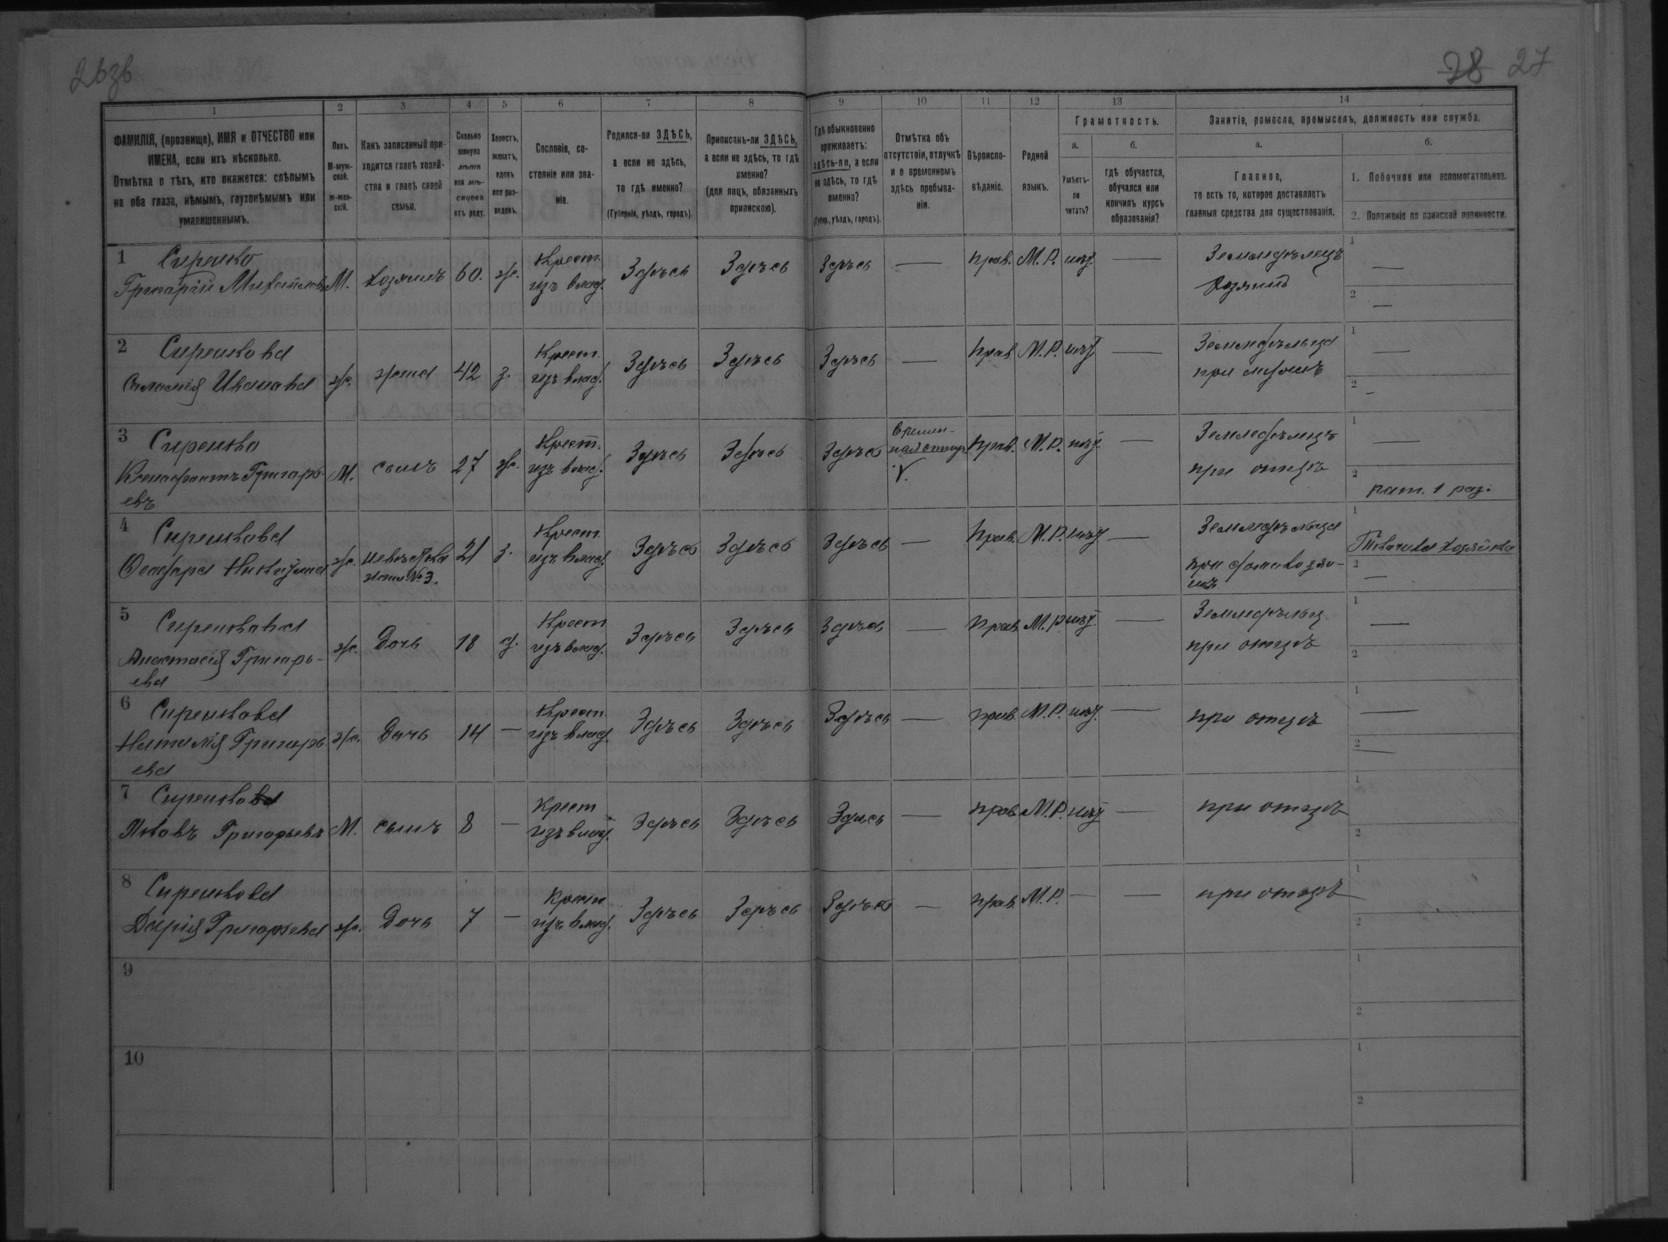 263б
28 27
1 2 3 4 5 6 7 8 9 10 11 12 13 14
ФАМИЛІЯ, (прозвище), ИМЯ и ОТЧЕСТВО или
ИМЕНА, если ихъ нѣсколько.
Отмѣтка о тѣхъ, кто окажется: слѣпымъ
на оба глаза, нѣмымъ, глухонѣмымъ или
умалишеннымъ.
Полъ.
М-муж-
ской.
Ж-жен-
скій.
Какъ записанный при-
ходится главѣ хозяй-
ства и главѣ своей
семьи.
Сколько
минуло
лѣтъ
или мѣ-
сяцевъ
отъ роду.
Холостъ,
женатъ,
вдовъ
или раз-
веденъ.
Сословіе, со-
стояніе или зва-
ніе.
Родился-ли ЗДѢСЬ,
а если не здѣсь,
то гдѣ именно?
(Губернія, уѣздъ, городъ).
Приписанъ-ли ЗДѢСЬ,
а если не здѣсь, то гдѣ
именно?
(для лицъ, обязанныхъ
припискою).
Гдѣ обыкновенно
проживаетъ:
здѣсь-ли, а если
не здѣсь, то гдѣ
именно?
(Губ., уѣздъ, городъ).
Отмѣтка объ
отсутствіи, отлучкѣ
и о временномъ
здѣсь пребыва-
ніи.
Вѣроиспо-
вѣданіе.
Родной
языкъ.
Грамотность.
а.
Умѣетъ-
ли
читать?
б.
гдѣ обучается,
обучался или
кончилъ курсъ
образованія?
Занятіе, ремесло, промыселъ, должность или служба.
а.
Главное,
то есть то, которое доставляетъ
главныя средства для существованія.
б.
1. Побочное или вспомогательное.
2. Положеніе по воинской повинности.
1 Сиренко
Григорій Михайловъ М. хозяинъ 60. ж. Крест. изъ влад. Здѣсь Здѣсь Здѣсь — прав. М.Р. нѣт. — Земледѣлецъ
хозяинъ
1 —
2 —
2 Сиренкова
Ивановна ж. жена 42 з. Крест. изъ влад. Здѣсь Здѣсь Здѣсь — прав. М.Р. нѣт — Земледѣлица
при мужѣ
1 —
2 -
3 Сиренко
Ксенофонтъ Григорь-
евъ М. сынъ 27 ж. Крест. изъ влад. Здѣсь Здѣсь Здѣсь прав. М.Р. нѣт — Земледѣлецъ
при отцѣ
1 —
2 рат. 1 раз.
4 Сиренкова
ж. невѣстка
жена №3. 21 з. Крест. изъ влад. Здѣсь Здѣсь Здѣсь — прав. М.Р. нѣт — Земледѣлица
при домохозяи-
нѣ
1
2 —
5 Сиренкова
Анастасія Григорь-
ева ж. Дочь 18 д. Крест. изъ влад. Здѣсь Здѣсь Здѣсь — прав. М.Р. нѣт — Земледѣлиц.
при отцѣ
1 —
2
6 Сиренкова
Наталія Григорь
ева ж. Дочь 14 — Крест. изъ влад. Здѣсь Здѣсь Здѣсь — прав. М.Р. нѣт. — при отцѣ
1 —
2 —
7 Сиренко
Яковъ Григорьевъ М. сынъ 8 — Крест изъ влад. Здѣсь Здѣсь Здѣсь — прав. М.Р. нѣт — при отцѣ
1
2
8 Сиренкова
Дарія Григорьева ж. Дочь 7 — Крест изъ влад. Здѣсь Здѣсь Здѣсь — прав. М.Р. — — при отцѣ
1
2
9
1
2
10
1
2